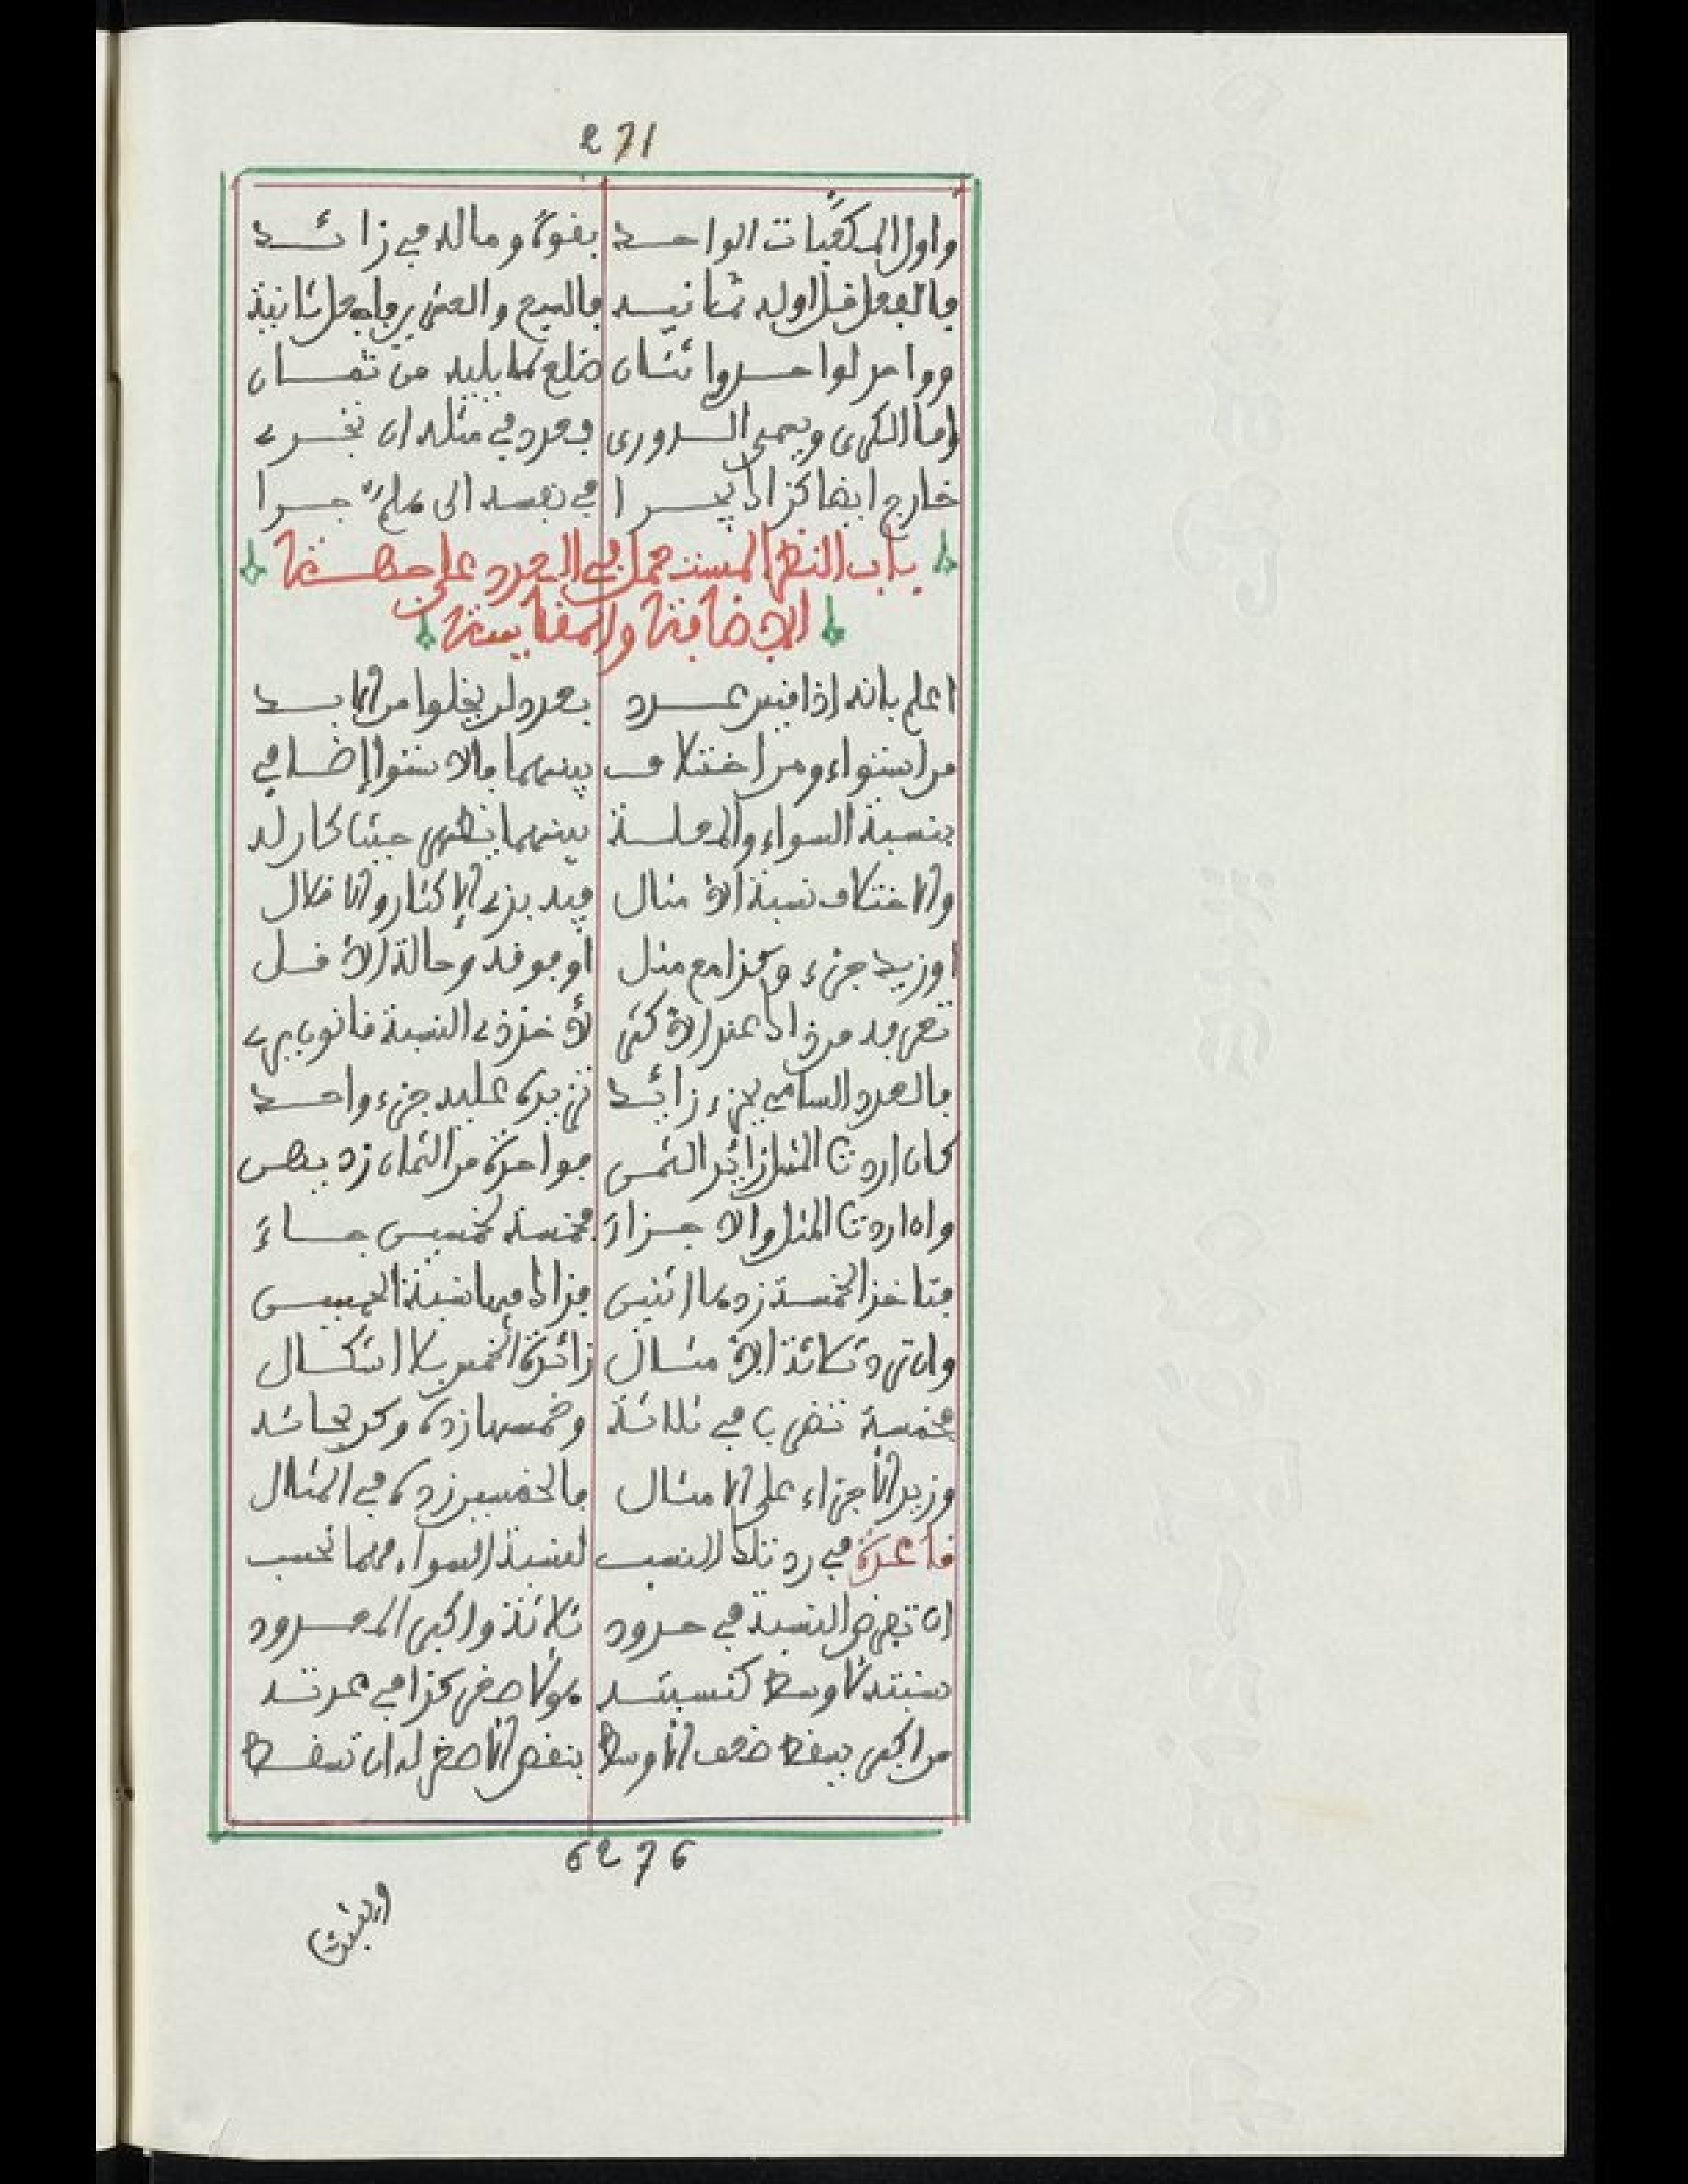 271
واول المكعبات الواحد بقوة وماله في زائد
وبالفعل قل اوله ثمانيه
وواحد لواحد واثنان ضلع لما يليه من ثمان
واما الكري ويسمى الدوري فعدد في مثله ان تجري
خارج ايضا كذاك يجرا في نفسه الى هلم جرا
باب النظر المستعمل في العدد على جهة
الاضافة والمقايسة
اعلم بانه إذا قيس عدد بعدد لن يخلوا من الابد
من استواء ومن اختلاف بينهما فالاستوا إضافي
بنسبة السواء والمعادلة بينهما نظير حيثما كان له
والاختلاف نسبة الأمثال فيه بذي الإكثار والاقلال
اوزيد جزء وكذا مع مثل او فوقه وحالة الأقل
تعرفه من ذاك عند الأكثر لأخذ ذي النسبة قانون بري
فالعدد السامي بجزء زائد تزيده عليه جزء واحد
كان اردت المثل زائد الثمن فواحدة من الثمان زد بهن
وان اردت المثل والاجزاء فخمسة لخمسين جاء
متا خذ الخمسة زدها اثنين فذاك فيها نسبة الخمسين
وان ترد ثلاثة الأمثال زائدة الخمس بلا اشكال
فخمسة تضرب في ثلاثة وخمسها زده وكن بحاثه
وزيد الأجزاء على الامثال فالخمسين زده في المثال
قاعدة في رد تلك النسب لنسبة السواء مهما تحسب
ان تعرض النسبة في حدود ثلاثة واكبر المعدود
نسبته لاوسط كنسبته هو لاصغر بكذا في عدته
من اكبر يسقط ضعف الأوسط بنقص الأصغر له ان تسقط
6276